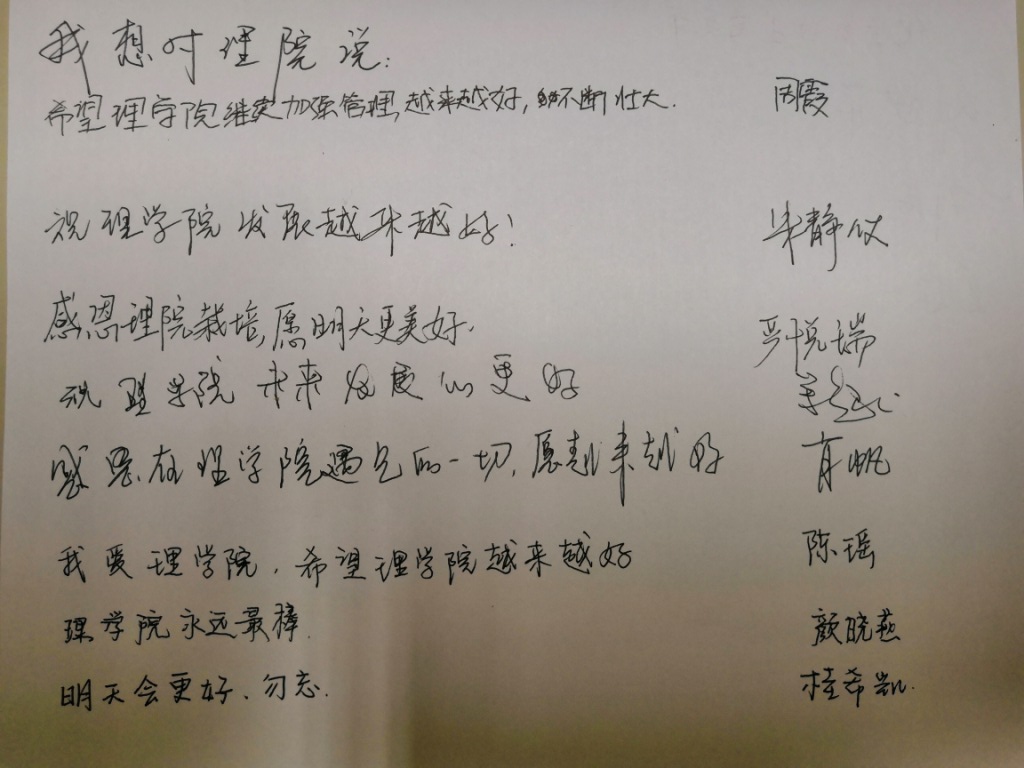 我想对理院说:
希望理学院继续加强管理,越来越好,不断壮大. 周霞
祝理学院发展越来越好! 朱静仪
感恩理院栽培,愿明天更美好. 严悦瑞
祝理学院未来发展的更好
感恩在理学院遇见的一切,愿越来越好 肖帆
我爱理学院,希望理学院越来越好 陈瑶
理学院永远最棒. 颜晓燕
明天会更好、勿忘. 桂希凯.